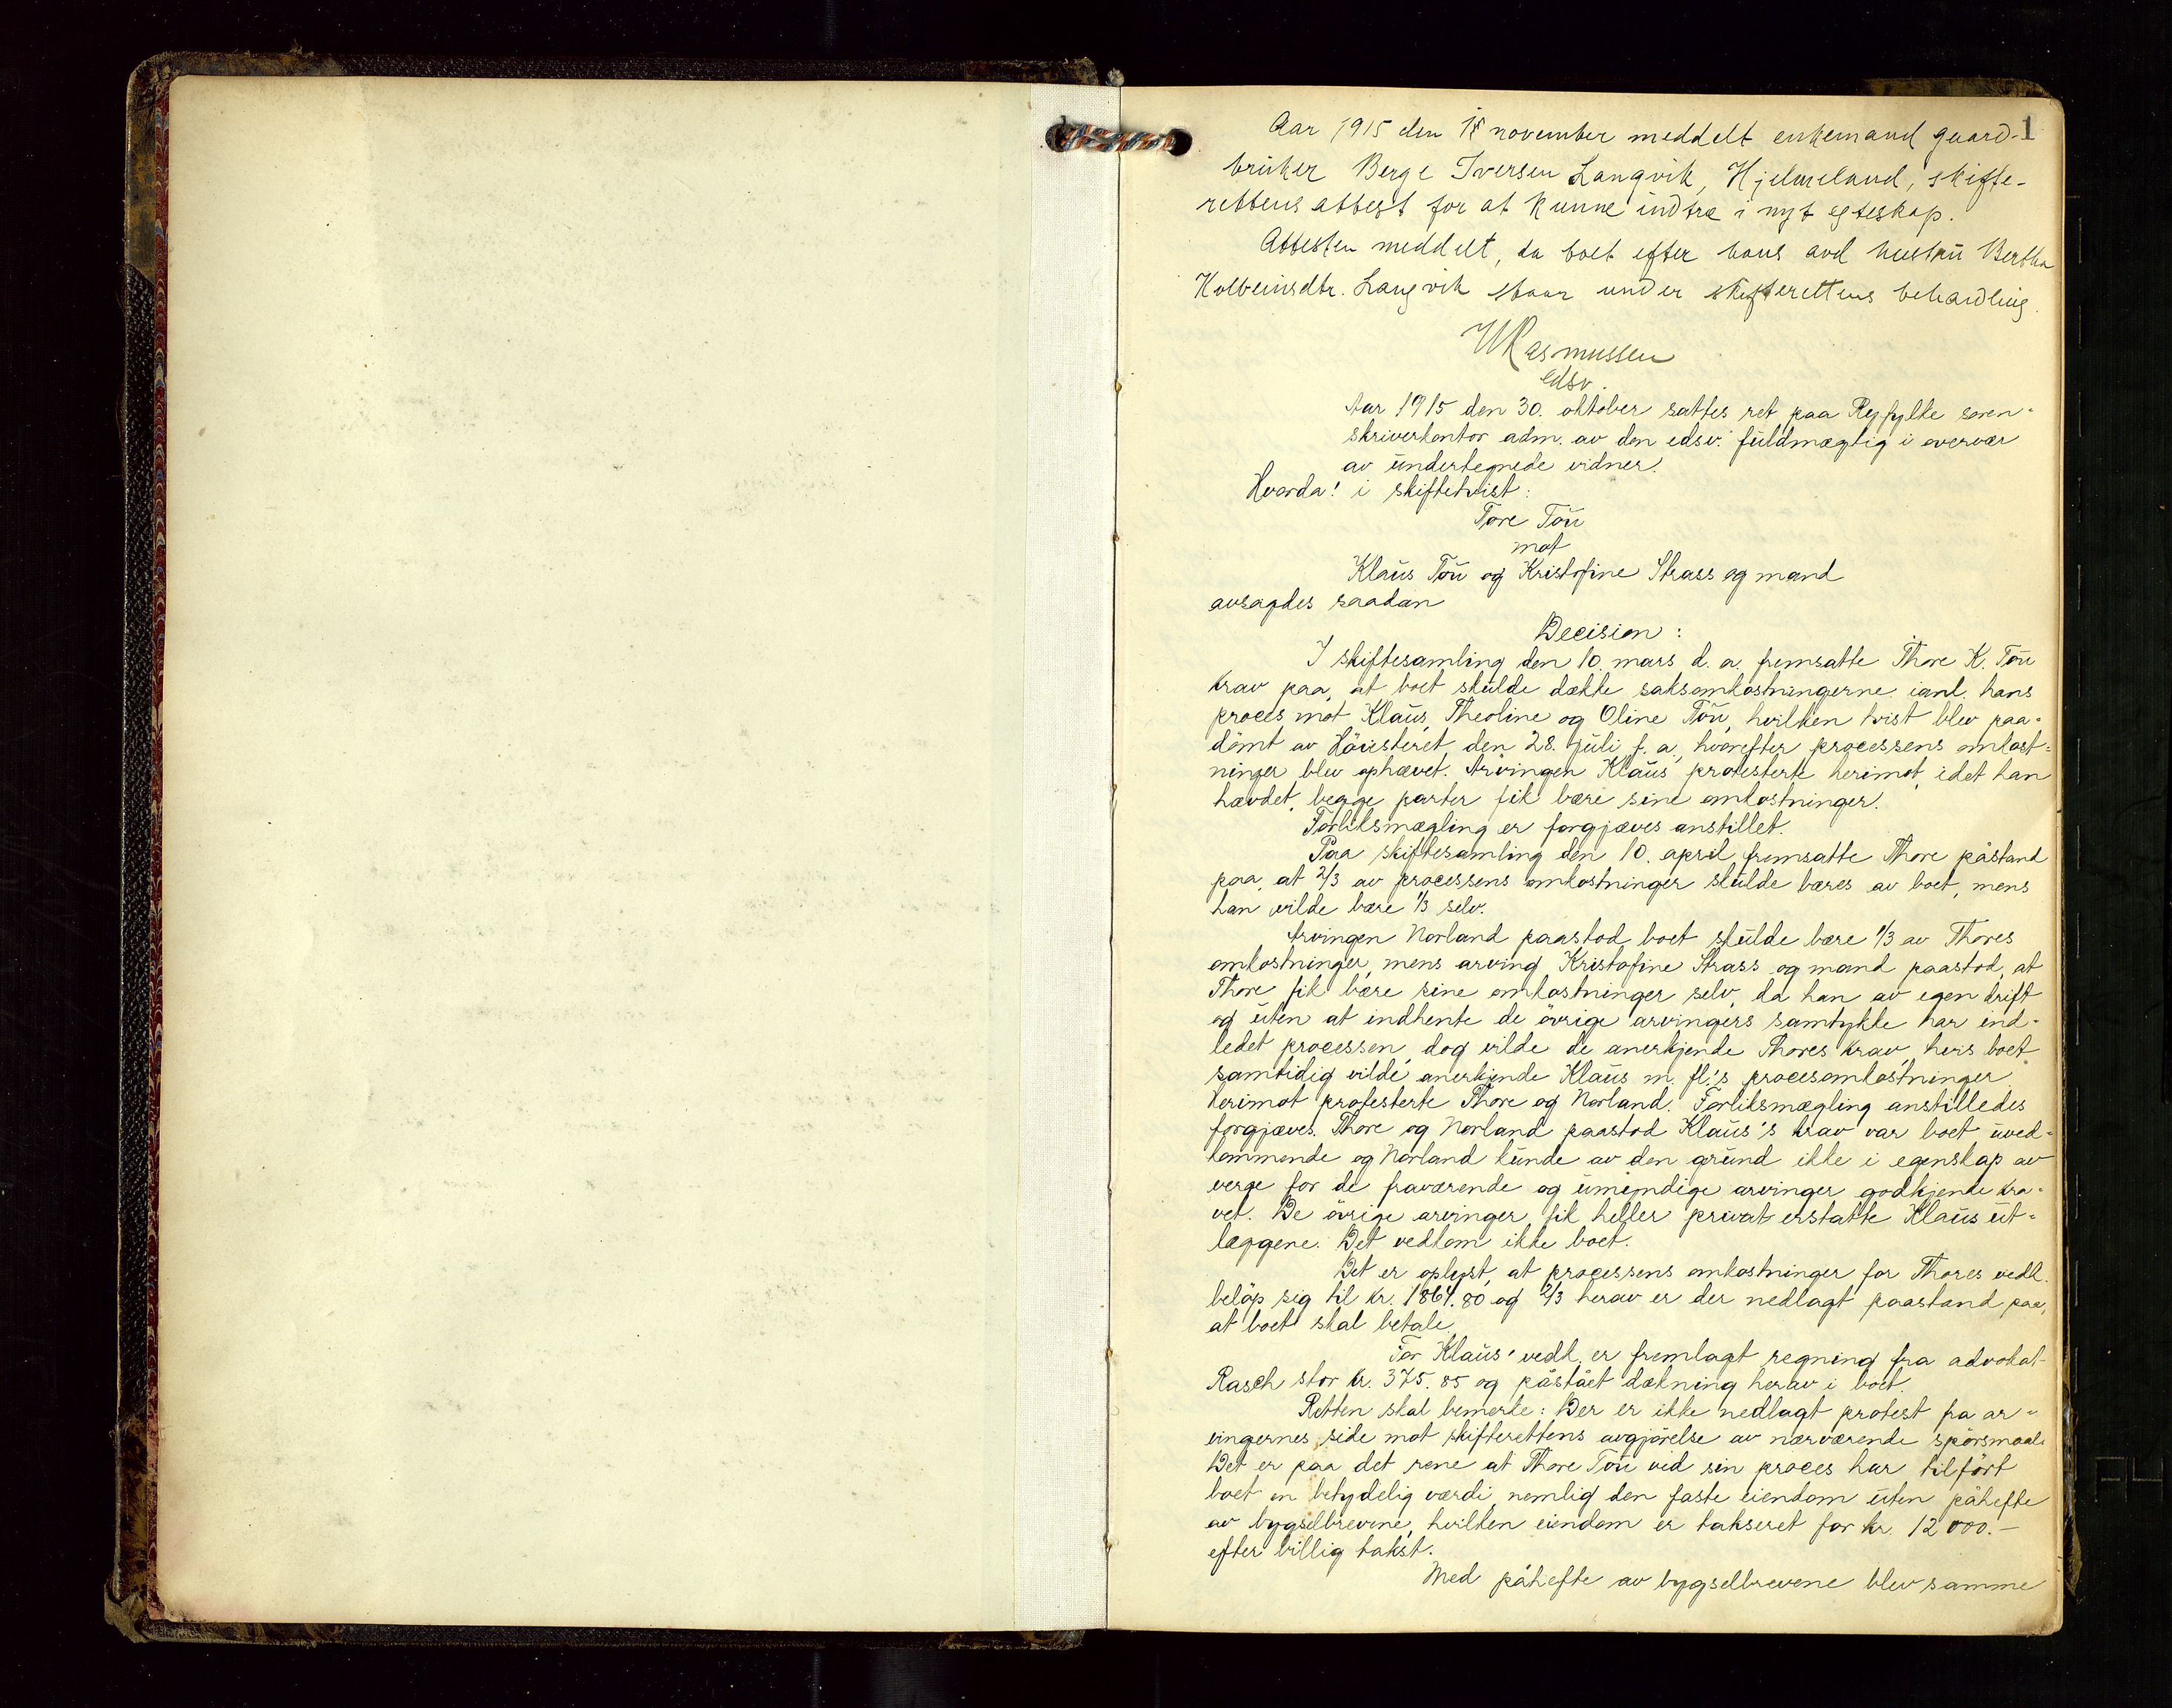 1
Aar 1915 den 18 november meddelt enkemand gaard-
bruker Berge Iversen Langvik, Hjelmeland, skifte-
rettens attest for at kunne indtræ i nyt egteskap.
Attesten meddelt, da boet efter hans avd hustru Bertha
Kolbeinsdtr. Langvik staar under skifterettens behandling.
WRasmussen
edsv.
Aar 1915 den 30. oktober sattes ret paa Ryfylke soren-
skriverkontor adm. av den edsv. fuldmægtig i overvær
av undertegnede vidner.
Hvorda! i skiftetvist:
Tore Tou
mot
Klaus Tou og Kristofine Strass og mand
avsagdes saadan
Decision:
I skiftesamling den 10. mars d. a. fremsatte Thore K. Tou
krav paa, at boet skulde dække saksomkostningerne ianl. hans
proces mot Klaus, Theoline og Oline Tou, hvilken tvist blev paa-
dömt av Höiesteret den 28. juli f. a., hvorefter processens omkost-
ninger blev ophævet. Arvingen Klaus protesterte herimot, idet han
hævdet, begge parter fik bære sine omkostninger.
Forliksmægling er forgjæves anstillet.
Paa skiftesamling den 10. april fremsatte Thore påstand
paa, at 2/3 av processens omkostninger skulde bæres av boet, mens
han vilde bære 1/3 selv.
Arvingen Norland paastod boet skulde bære 1/3 av Thores
omkostninger, mens arving Kristofine Strass og mand paastod, at
Thore fik bære sine omkostninger selv, da han av egen drift
og uten at indhente de övrige arvingers samtykke har ind-
ledet processen, dog vilde de anerkjende Thores krav, hvis boet
samtidig vilde anerkjende Klaus m. fl.'s procesomkostninger.
Herimot protesterte Thore og Norland. Forliksmægling anstilledes
forgjæves. Thore og Norland paastod Klaus's krav var boet uved-
kommende og Norland kunde av den grund ikke i egenskap av
verge for de fraværende og umyndige arvinger godkjende kra-
vet. De övrige arvinger fik heller privat erstatte Klaus ut-
læggene. Det vedkom ikke boet.
Det er oplyst, at processens omkostninger for Thores vedk.
belöp sig til kr. 1864.80 og 2/3 herav er der nedlagt paastand paa,
at boet skal betale.
For Klaus' vedk. er fremlagt regning fra advokat
Rasch stor kr. 375.85 og påstået dækning herav i boet.
Retten skal bemerke: Der er ikke nedlagt protest fra ar-
vingernes side mot skifterettens avgjörelse av nærværende spörsmaal.
Det er paa det rene at Thore Tou ved sin proces har tilfört
boet en betydelig værdi, nemlig den faste eiendom uten påhefte
av bygselbrevene, hvilken eiendom er takseret for kr. 12 000.-
efter billig takst.
Med påhefte av bygselbrevene blev samme